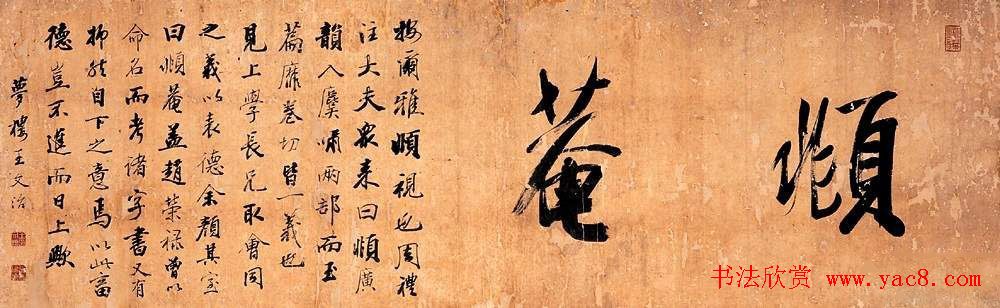 頫菴
按爾雅頫視也周禮
注大夫眾来曰頫廣
韻入麌嘯兩部而玉
篇靡卷切皆一義也
見上學長兄取會同
之義以表德余顏其室
曰頫菴蓋趙榮禄曾以
命名而考諸字書又有
抑然自下之意焉以此畜
德豈不進而日上歟
夢樓王文治
书法欣赏 www.yac8.com